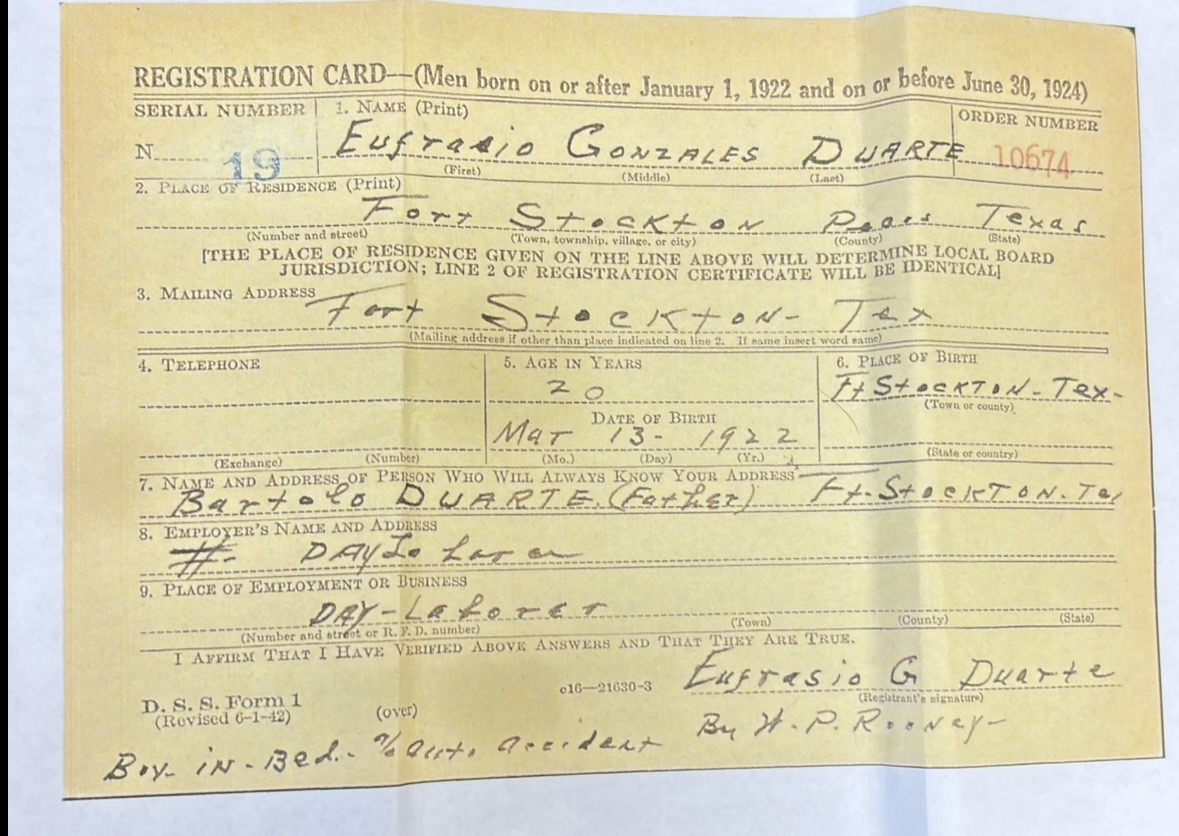 REGISTRATION CARD—(Men born on or after January 1, 1922 and on or before June 30, 1924)
SERIAL NUMBER 1. NAME (Print) ORDER NUMBER
N 19 Eufrasio GONZALES DUARTE 10674
(First) (Middle) (Last)
2. PLACE OF RESIDENCE (Print)
Fort Stockton Pecos Texas
(Number and street) (Town, township, village, or city) (County) (State)
[THE PLACE OF RESIDENCE GIVEN ON THE LINE ABOVE WILL DETERMINE LOCAL BOARD
JURISDICTION; LINE 2 OF REGISTRATION CERTIFICATE WILL BE IDENTICAL]
3. MAILING ADDRESS
Fort Stockton- Tex
(Mailing address if other than place indicated on line 2. If same insert word same)
4. TELEPHONE 5. AGE IN YEARS 6. PLACE OF BIRTH
20 Ft Stockton-Tex-
(Town or county)
DATE OF BIRTH
Mar 13- 1922
(Exchange) (Number) (Mo.) (Day) (Yr.) (State or country)
7. NAME AND ADDRESS OF PERSON WHO WILL ALWAYS KNOW YOUR ADDRESS
Bartolo DUARTE. (Father) Ft. Stockton. Tex
8. EMPLOYER'S NAME AND ADDRESS
DAY
9. PLACE OF EMPLOYMENT OR BUSINESS
DAY-Laborer
(Number and street or R. F. D. number) (Town) (County) (State)
I AFFIRM THAT I HAVE VERIFIED ABOVE ANSWERS AND THAT THEY ARE TRUE.
Eufrasio G Duarte
D. S. S. Form 1 c16—21630-3 (Registrant's signature)
(Revised 6-1-42) (over) By W. P. Rooney-
Boy-in-Bed.- % auto accident